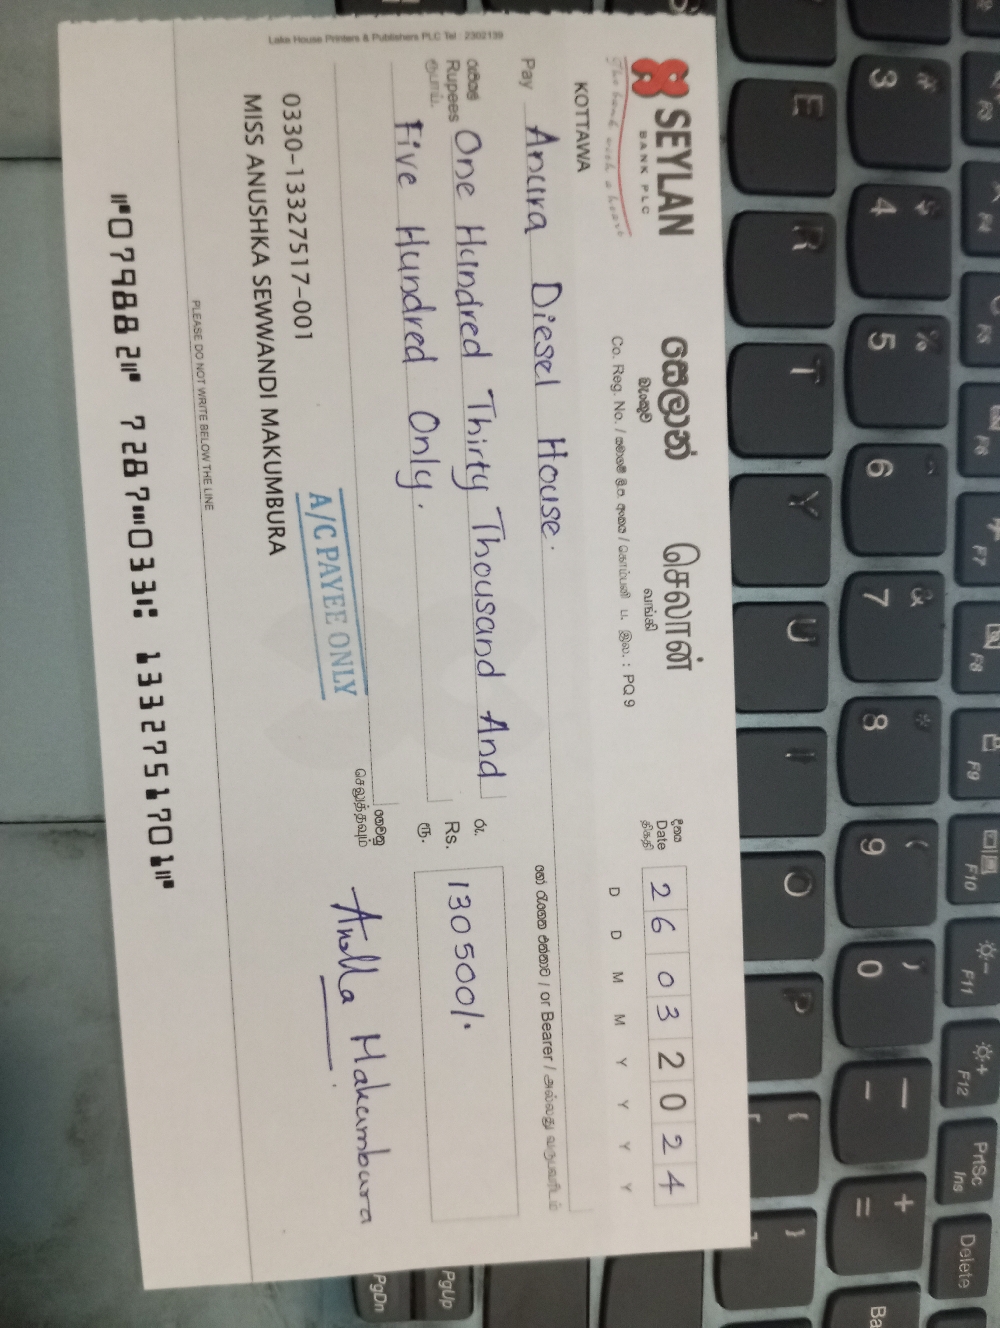 SEYLAN
BANK PLC
The bank with a heart
සෙලාන්
බැංකුව
செலான்
வங்கி
KOTTAWA
Co. Reg. No. / PQ 9
දිනය
Date
திகதி
2 6 0 3 2 0 2 4
D D M M Y Y Y Y
Pay Anura Diesel House.
or Bearer
රුපියල්
Rupees One Hundred Thirty Thousand And
ரூபாய்
Five Hundred Only.
රු.
Rs. 130 500/.
ரூ.
ගෙවනු
செலுத்தவும்
A/C PAYEE ONLY
0330-13327517-001
MISS ANUSHKA SEWWANDI MAKUMBURA
Makumbura
PLEASE DO NOT WRITE BELOW THE LINE
⑈079882⑈ 7287⑉033⑆ 1332751701⑈
Lake House Printers & Publishers PLC Tel : 2302139
E R T Y U I O P { [ } ]
# 3 4 % 5 6 & 7 * 8 ( 9 ) 0 — - + =
F3 F4 F5 F6 F7 F8 F9 F10 F11 F12
PrtSc
Ins
Delete
PgUp
PgDn